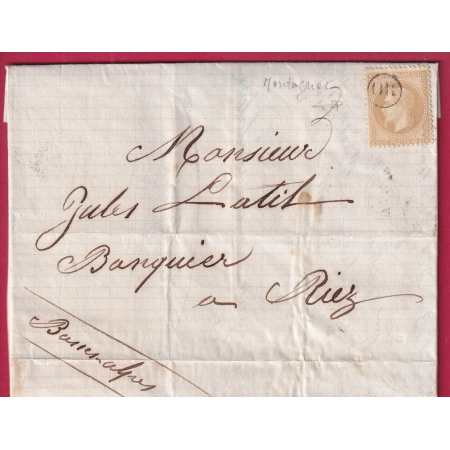 Montagnac
Monsieur
Jules Latil
Banquier
a Riez
Basses alpes